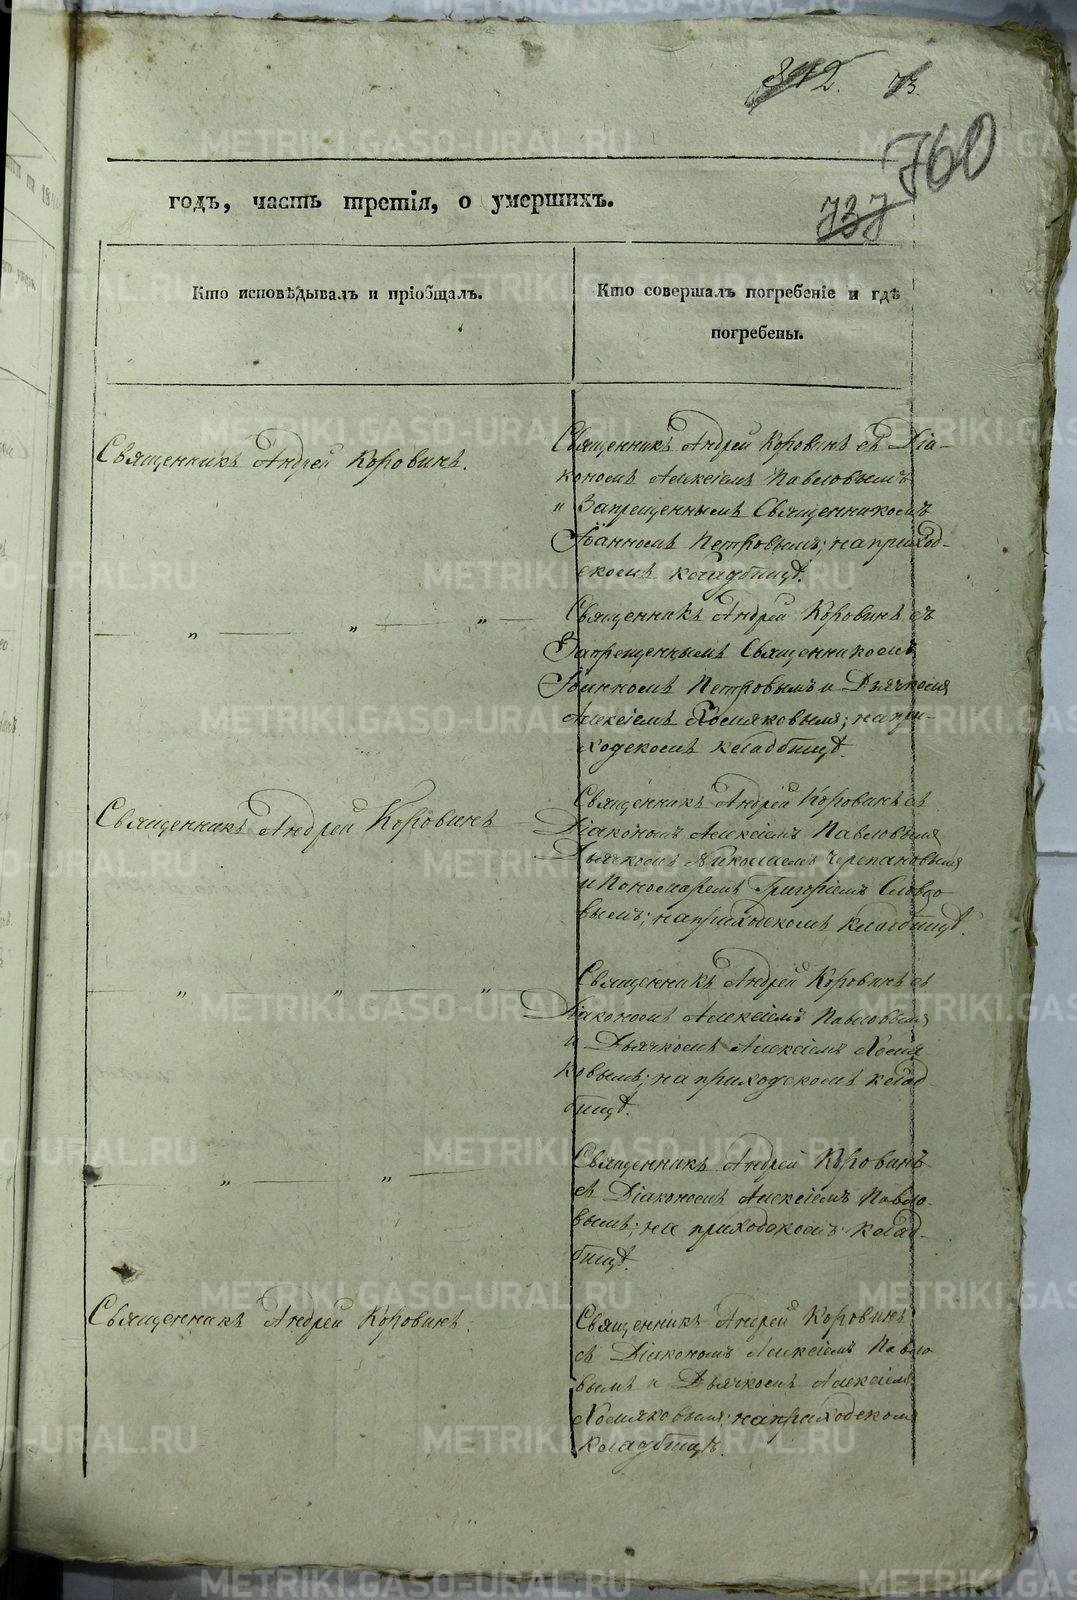 812. 73.
760
737
годъ, часть третія, о умершихъ.
Кто исповѣдывалъ и пріобщалъ.
Кто совершалъ погребеніе и гдѣ
погребены.
Священникъ Андрей Коровинъ.
Священникъ Андрей Коровинъ съ Діа-
кономъ Алексіемъ Павловымъ
и Запрещеннымъ Священникомъ
Іоанномъ Петровымъ; на приход-
скомъ кладбищѣ.
— „ — „ — „ —
Священникъ Андрей Коровинъ съ
Запрещеннымъ Священникомъ
Іоанномъ Петровымъ и Дьячкомъ
Алексіемъ Хомяковымъ; на при-
ходскомъ кладбищѣ.
Священникъ Андрей Коровинъ
Священникъ Андрей Коровинъ съ
Діакономъ Алексіемъ Павловымъ
Дьячкомъ Николаемъ Черепановымъ
и Пономаремъ Григоріемъ Словцо-
вымъ; на приходскомъ кладбищѣ.
— „ — „ — „ —
Священникъ Андрей Коровинъ съ
Діакономъ Алексіемъ Павловымъ
и Дьячкомъ Алексіемъ Хомя-
ковымъ; на приходскомъ клад-
бищѣ.
— „ — „ —
Священникъ Андрей Коровинъ
съ Діакономъ Алексіемъ Павло-
вымъ; на приходскомъ клад-
бищѣ.
Священникъ Андрей Коровинъ.
Священникъ Андрей Коровинъ
съ Діакономъ Алексіемъ Павло-
вымъ и Дьячкомъ Алексіемъ
Хомяковымъ; на приходскомъ
кладбищѣ.
METRIKI.GASO-URAL.RU